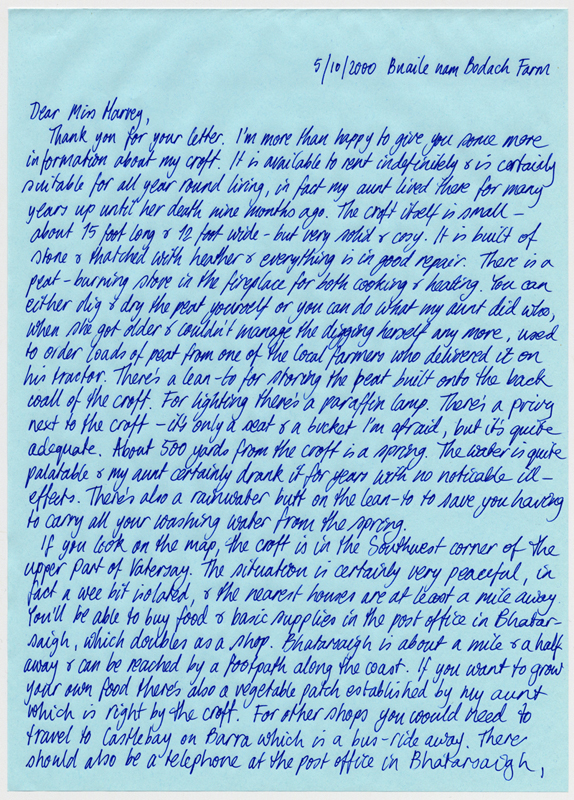 5/10/2000 Buaile nam Bodach Farm
Dear Miss Harvey,
Thank you for your letter. I'm more than happy to give you some more
information about my croft. It is available to rent indefinitely & is certainly
suitable for all year round living, in fact my aunt lived there for many
years up until her death nine months ago. The croft itself is small –
about 15 foot long & 12 foot wide - but very solid & cosy. It is built of
stone & thatched with heather & everything is in good repair. There is a
peat-burning stove in the fireplace for both cooking & heating. You can
either dig & dry the peat yourself or you can do what my aunt did who,
when she got older & couldn't manage the digging herself any more, used
to order loads of peat from one of the local farmers who delivered it on
his tractor. There's a lean-to for storing the peat built onto the back
wall of the croft. For lighting there's a paraffin lamp. There's a privy
next to the croft – it's only a seat & a bucket I'm afraid, but it's quite
adequate. About 500 yards from the croft is a spring. The water is quite
palatable & my aunt certainly drank it for years with no noticable ill-
effects. There's also a rainwater butt on the lean-to to save you having
to carry all your washing water from the spring.
If you look on the map, the croft is in the Southwest corner of the
upper part of Vatersay. The situation is certainly very peaceful, in
fact a wee bit isolated, & the nearest houses are at least a mile away.
You'll be able to buy food & basic supplies in the post office in Bhatar-
saigh, which doubles as a shop. Bhatarsaigh is about a mile & a half
away & can be reached by a footpath along the coast. If you want to grow
your own food there's also a vegetable patch established by my aunt
which is right by the croft. For other shops you would need to
travel to Castlebay on Barra which is a bus-ride away. There
should also be a telephone at the post office in Bhatarsaigh,